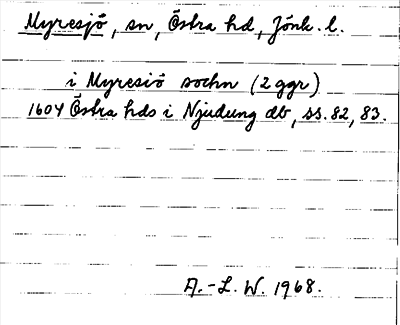 Myresjö, sn, Östra hd, Jönk. l.
i Myresiö sochn (2 ggr)
1604 Östra hds i Njudung db, ss. 82, 83.
A.-L. W. 1968.